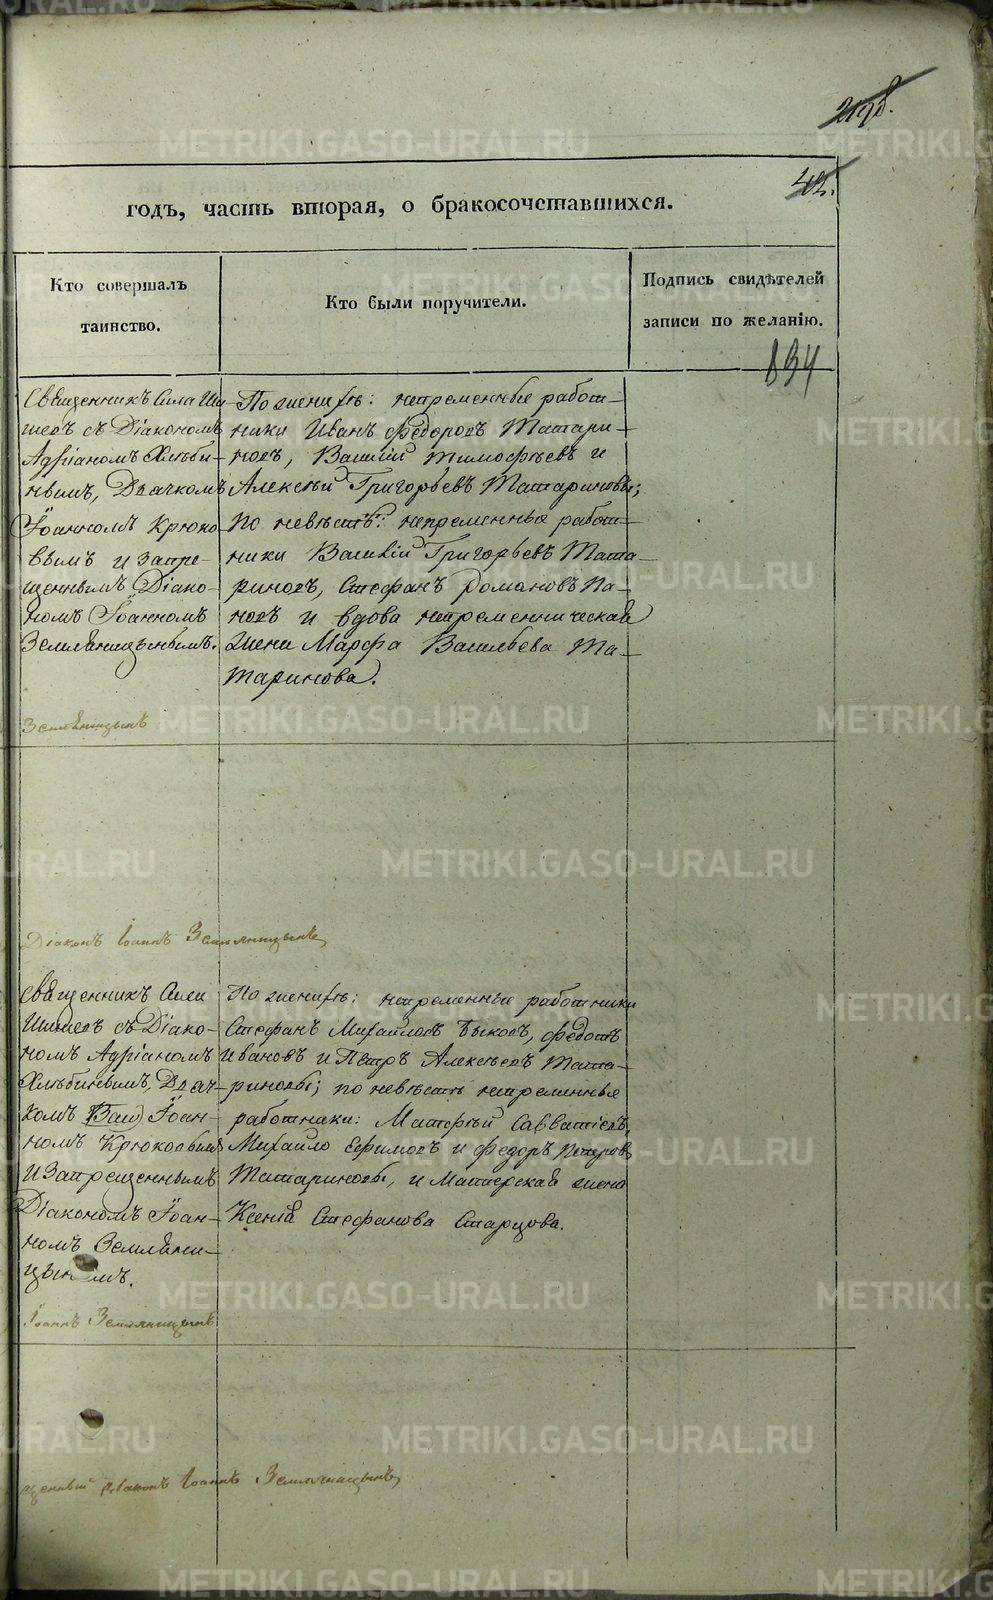 218.
42.
годъ, часть вторая, о бракосочетавшихся.
Кто совершалъ
таинство.
Кто были поручители.
Подпись свидѣтелей
записи по желанію.
834
Священникъ Сила Ши-
шевъ съ Діакономъ
Адріаномъ Хлѣби-
нымъ, Дьячкомъ
Іоанномъ Крюко-
вымъ и запре-
щеннымъ Діако-
номъ Іоанномъ
Земляницынымъ.
По женихѣ: непременные работ-
ники Иванъ Федоровъ Татари-
новъ, Василій Тимофѣевъ и
Алексѣй Григорьевъ Татариновы;
по невѣстѣ: непременные работ-
ники Василій Григорьевъ Тата-
риновъ, Стефанъ Романовъ Па-
новъ и вдова непременническая
жена Марфа Васильева Та-
таринова.
Земляницынъ
Діаконъ Іоаннъ Земляницынъ
Священникъ Сила
Шишевъ съ Діако-
номъ Адріаномъ
Хлѣбинымъ, Дьяч-
комъ Іоан-
номъ Крюковымъ
и Запрещеннымъ
Діакономъ Іоан-
номъ Земляни-
цынымъ.
По женихѣ: непременные работники
Стефанъ Михайловъ Быковъ, Федотъ
Ивановъ и Петръ Алексѣевъ Тата-
риновы; по невѣстѣ непременные
работники: Матфѣй Савватіевъ,
Михайло Ефимовъ и Федоръ Петровъ
Татариновы, и Мастерская жена
Ксенія Стефанова Старцова.
Іоаннъ Земляницынъ
щенный діаконъ Іоаннъ Земляницынъ
METRIKI.GASO-URAL.RU